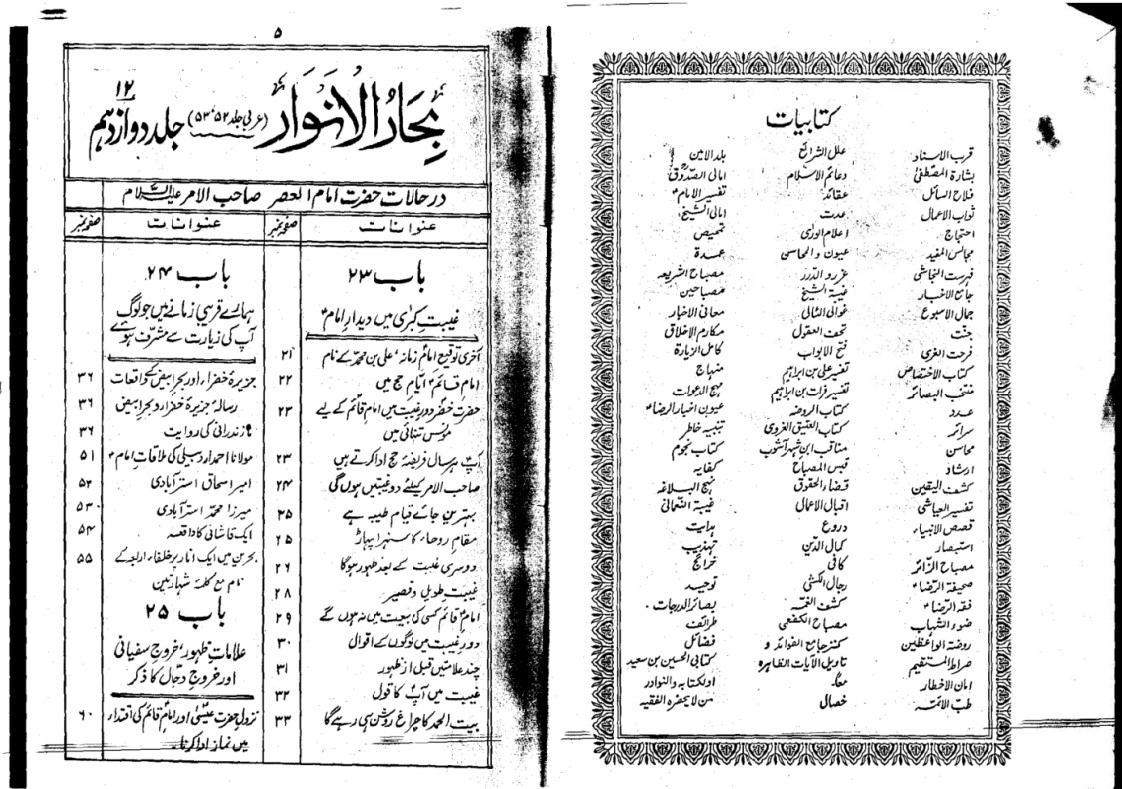 کتابیات
قرب الاسناد علل الشرائع بلد الامین
بشارۃ المصطفیٰ دعائم الاسلام امالی الصدوق
فلاح السائل عقائد تفسیر الامام
ثواب الاعمال عدت امالی الشیخ
احتجاج اعلام الوریٰ تمحیص
مجالس المفید عیون و المحاسن عمدۃ
فہرست النجاشی غرر و الدرر مصباح الشریعہ
جامع الاخبار غیبۃ الشیخ مصباحین
جمال الاسبوع غوالی اللئالی معانی الاخبار
جنت تحف العقول مکارم الاخلاق
فرحت الغری فتح الابواب کامل الزیارۃ
کتاب الاختصاص تفسیر علی بن ابراہیم منہاج
منتخب البصائر تفسیر فرات بن ابراہیم مہج الدعوات
عدد کتاب الروضہ عیون اخبار الرضا
سرائر کتاب العتیق الغروی تنبیہ خاطر
محاسن مناقب ابن شہر آشوب کتاب نجوم
ارشاد قبس المصباح کفایہ
کشف الیقین قضاء الحقوق نہج البلاغہ
تفسیر العیاشی اقبال الاعمال غیبۃ النعمانی
قصص الانبیاء دروع ہدایت
استبصار کمال الدین تہذیب
مصباح الزائر کافی خرائج
صحیفۃ الرضا رجال الکشی توحید
فقہ الرضا کشف الغمہ بصائر الدرجات
ضوء الشہاب مصباح الکفعمی طرائف
روضۃ الواعظین کنز جامع الفوائد و فضائل
صراط المستقیم تاویل الآیات الظاہرہ کتابی الحسین بن سعید
امان الاخطار معاً اولکتابہ والنوادر
طب الائمہ خصال من لا یحضرہ الفقیہ
۵
بِحَارُ الْاَنْوَار (عربی جلد ۵۲، ۵۳) جلد دوازدہم ۱۲
درحالات حضرت امام العصر صاحب الامر علیہ السلام
عنوانات صفحہ نمبر
باب ۲۳
غیبتِ کبریٰ میں دیدارِ امام
آخری توقیع امام زمانہ، علی بن محمد کے نام ۲۱
امام قائم ایّامِ حج میں ۲۲
حضرت خضر دورِ غیبت میں امام قائم کے لیے ۲۳
مونسِ تنہائی ہیں
آپ ہر سال فریضۂ حج ادا کرتے ہیں ۲۳
صاحب الامر کیلئے دو غیبتیں ہوں گی ۲۴
بہترین جائے قیام طیبہ ہے ۲۵
مقامِ روحاء کا سنہرا پہاڑ ۲۵
دوسری غیبت کے بعد ظہور ہوگا ۲۶
غیبت طویل و قصیر ۲۸
امام قائم کسی کی بیعت میں نہ ہوں گے ۲۹
دورِ غیبت میں لوگوں کے اقوال ۳۰
چند علامتیں قبل از ظہور ۳۱
غیبت میں آپ کا قول ۳۲
بیت الحمد کا چراغ روشن ہی رہے گا ۳۳
عنوانات صفحہ نمبر
باب ۲۴
ہمارے قریبی زمانے میں جو لوگ
آپ کی زیارت سے مشرّف ہوئے
جزیرۂ خضراء اور بحر ابیض کے واقعات ۳۶
رسالۂ جزیرۂ خضراء و بحر ابیض ۳۶
مازندرانی کی روایت ۳۶
مولانا احمد اردبیلی کی ملاقاتِ امام ۵۱
امیر اسحاق استرآبادی ۵۲
میرزا محمد استرآبادی ۵۳
ایک قاشانی کا واقعہ ۵۴
بحرین میں ایک انار پر خلفاء اربعہ کے ۵۵
نام مع کلمۂ شہادتین
باب ۲۵
علاماتِ ظہور، خروجِ سفیانی
اور خروجِ دجّال کا ذکر
نزولِ حضرت عیسیٰ اور امام قائم کی اقتداء ۶۰
میں نماز ادا کرنا